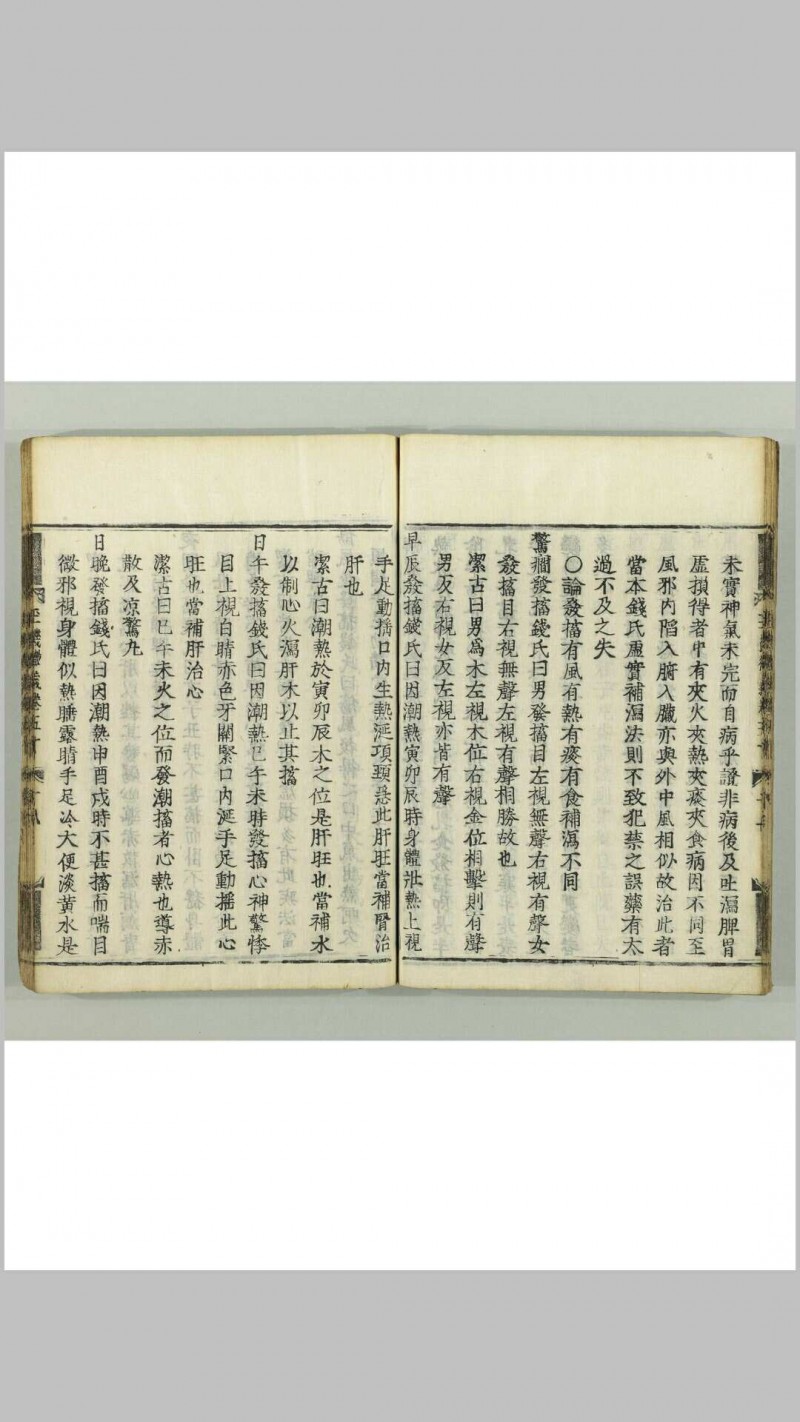 未實神氣未完而自病乎證非病後及吐瀉脾胃
虛損得者中有夾火夾熱夾痰夾食病因不同至
風邪内陷入腑入臟亦與外中風相似故治此者
當本錢氏虛實補瀉法則不致犯禁之誤藥有太
過不及之失
○論發搐有風有熱有痰有食補瀉不同
驚癎發搐錢氏曰男發搐目左視無聲右視有聲女
發搐目右視無聲左視有聲相勝故也
潔古曰男爲木左視木位右視金位相擊則有聲
男反右視女反左視亦皆有聲
早辰發搐錢氏曰因潮熱寅卯辰時身體壯熱上視
手足動搐口内生熱涎項頸急此肝旺當補腎治
肝也
潔古曰潮熱於寅卯辰木之位是肝旺也當補水
以制心火瀉肝木以止其搐
日午發搐錢氏曰因潮熱巳午未時發搐心神驚悸
目上視白睛赤色牙關緊口内涎手足動搖此心
旺也當補肝治心
潔古曰巳午未火之位而發潮搐者心熱也導赤
散及凉驚丸
日晚發搐錢氏曰因潮熱申酉戌時不甚搐而喘目
微邪視身體似熱睡露睛手足冷大便淡黄水是